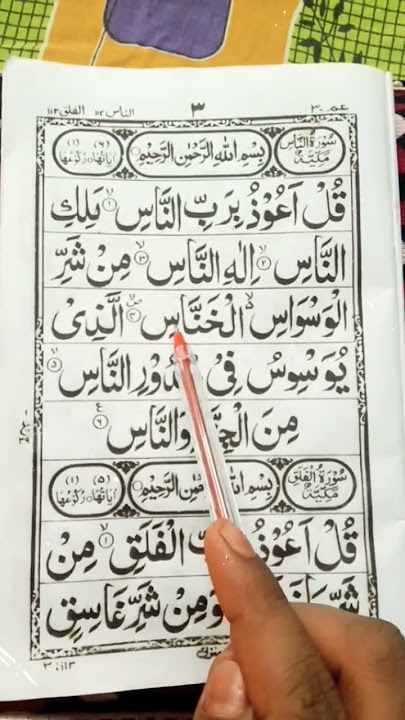 عم ٣٠ ٣ الناس ١١٤ الفلق ١١٣
سُوْرَةُ النَّاسِ مَكِّيَّةٌ بِسْمِ اللّٰهِ الرَّحْمٰنِ الرَّحِيْمِ (٦) اٰيَاتُهَا (١) رُكُوْعُهَا
قُلْ اَعُوْذُ بِرَبِّ النَّاسِ ۙ‏﴿۱﴾ مَلِكِ
النَّاسِ ۙ‏﴿۲﴾ اِلٰهِ النَّاسِ ۙ‏﴿۳﴾ مِنْ شَرِّ
الْوَسْوَاسِ ۙ الْخَنَّاسِ ۙ‏﴿۴﴾ الَّذِىْ
يُوَسْوِسُ فِىْ النَّاسِ ۙ‏﴿۵﴾
مِنَ وَالنَّاسِ ‏﴿۶﴾
سُوْرَةُ الْفَلَقِ مَكِّيَّةٌ بِسْمِ اللّٰهِ الرَّحِيْمِ (٥) اٰيَاتُهَا (١) رُكُوْعُهَا
قُلْ اَعُوْذُ الْفَلَقِ ۙ‏﴿۱﴾ مِنْ
شَرِّ وَمِنْ شَرِّ غَاسِقٍ
٣ : ١١٣